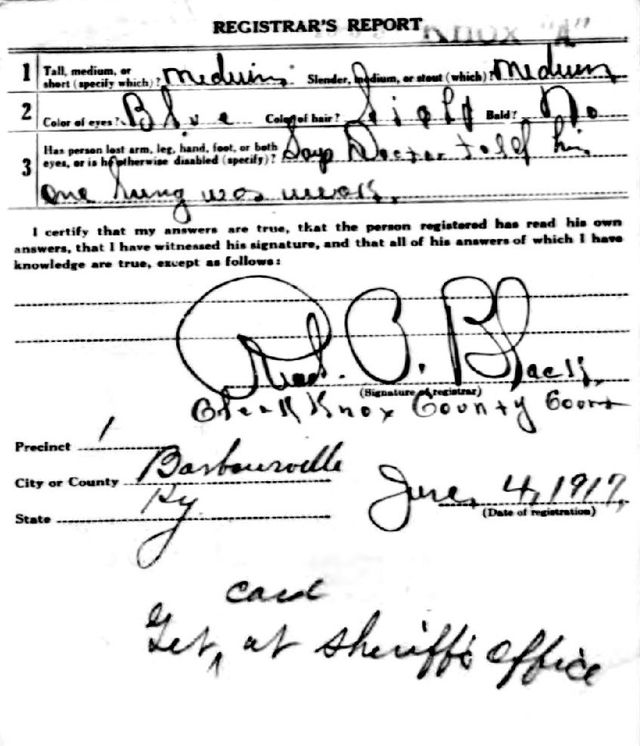 REGISTRAR'S REPORT
1 Tall, medium, or short (specify which)? Medium Slender, medium, or stout (which)? Medium
2 Color of eyes? Blue Color of hair? Light Bald? No
3 Has person lost arm, leg, hand, foot, or both eyes, or is he otherwise disabled (specify)? Says Doctor told him
one lung was weak.
I certify that my answers are true, that the person registered has read his own
answers, that I have witnessed his signature, and that all of his answers of which I have
knowledge are true, except as follows:
C. Black
(Signature of registrar)
Clerk Knox County Court
Precinct 1
City or County Barbourville
State Ky
June, 4, 1917,
(Date of registration)
card
Get ^ at Sheriffs office